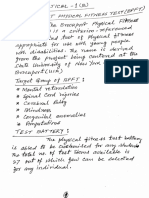 PRACTICAL - 1 (B)
BROCKPORT PHYSICAL FITNESS TEST (BPFT)
The Brockport Physical Fitness
is a criterion - referenced
test of Physical fitness
appropriate for use with young people
with disabilities. The name is derived
from the project being centered at the
State University of New York
Brockport (USA)
Target Group of BPFT :
Mental retardation
Spinal Cord injuries
Cerebral Palsy
Blindness
Congenital anomalies
Amputations
TEST BATTERY :
The physical fitness test battery
is able to be customized for any student
The total no. of test items available is
27 out of which few can be selected
for any individual.